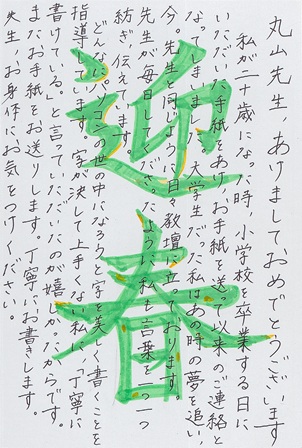 丸山先生、あけましておめでとうございます
私が二十歳になった時、小学校を卒業する日に
いただいた手紙をあけ、お手紙を送って以来のご連絡と
なってしまいました。大学生だった私はあの時の夢を追い
今。先生と同じように日々教壇に立っております。
先生が毎日してくださったように、私も言葉を一つ一つ
紡ぎ、伝えています。
どんなにパソコンの世の中になろうと字を美しく書くことを
指導しています。字が決して上手くない私に「丁寧に
書けている。」と言っていただいたのが嬉しかったからです。
またお手紙をお送りします。丁寧にお書きします。
先生、お身体にお気をつけください。
迎春